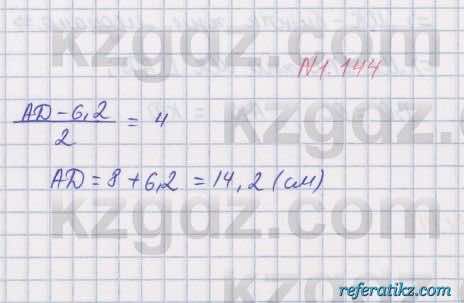 kzgdz.com
N1.144
(AD-6,2)/2 = 4
AD = 8 + 6,2 = 14,2 (см)
kzgdz.com
referatikz.com